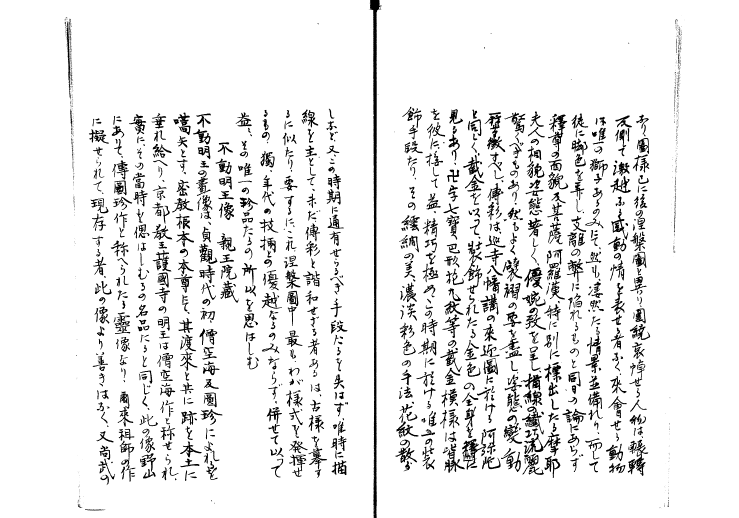 り圖樣已に後の涅槃圖と異り圖繞哀悼せる人物は輾轉
反側て激越なる感動の情を表せる者なく來會せる動物
は唯一の獅子あるのみにて然も凄然たる情景並備れり而して
徒に脚色を弄し支離の弊に陥れるものと同日の論にあらず
釋尊の面貌及其菩薩阿羅漢特に別に標出したる摩耶
夫人の相貌姿態著しく優婉の致を呈し描線の纖巧流麗
驚くべきものあり然もよく襞褶の要を盡し姿態の變動
に於ける阿弥陀
と同じく截金を以て裝飾せられたる金色の
見るあり卍字七寶巴形花丸紋等の截金模樣は
を彼に接して益精巧を極めこの時期に於ける唯一の裝
飾手段たり、その繧繝の美、濃淡彩色の手法花紋の散
しなど又この時期に通有せらるべき手段たるを失はず、唯時に描
線を主として、未だ傳彩と諧和せざる者あるは、古樣を摹す
るに似たり、要するにこれ涅槃圖中最もわが樣式を發揮せ
るもの、獨、年代の技術との優越なるのみならず、併せて以つて
益、その唯一の珍品たるの所以を思はしむ
不動明王像 親王院藏
不動明王の畫像は、貞觀時代の初僧空海及圓珍によれるを
嚆矢とす、密教根本の本尊にて、其渡來と共に跡を本土に
垂れ給へり、京都教王護國寺の明王は僧空海作と稱せられ、
實に、その當時を偲はしむるの名品たると同じく、此の像野山
にありて、傳圓珍作と稱へられたる靈像なり、爾來祖師の作
に擬せられて、現存する者、此の像より善きはなく、又尚武の